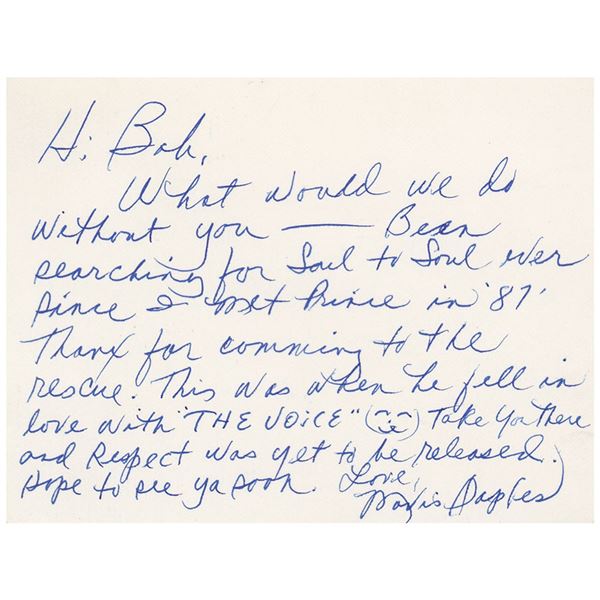 Hi Bob,
What would we do
without you — Been
searching for Soul to Soul ever
since I met Prince in '87'
Thanx for comming to the
rescue. This was when he fell in
love with "THE VOICE" Take You There
and Respect was yet to be released.
Hope to see ya soon. Love,
Mavis Staples